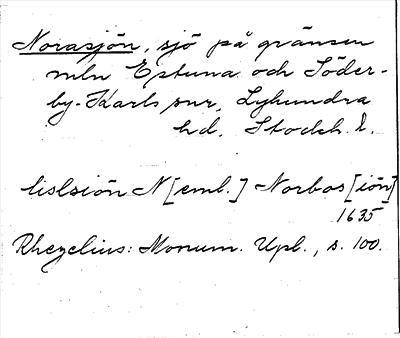 Norasjön, sjö på gränsen
mln Estuna och Söder-
by-Karls snr, Lyhundra
hd, Stockh. l.
lislsiön N[eml.] Norbos[iön]
1635
Rhezelius: Monum. Upl., s. 100.